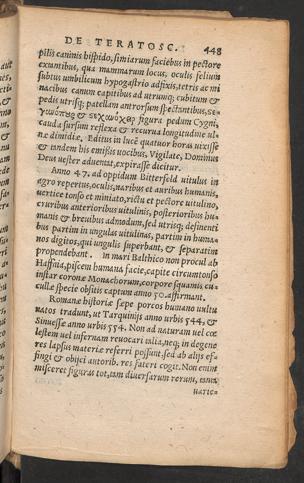 DE TERATOSC. 448
pilis caninis hispido, simiarum faciebus in pectore
exeuntibus, qua mammarum locus, oculis felium
subtus umbilicum hypogastrio adfixis, tetris ac mi
nacibus canum capitibus ad utrunq; cubitum &
pedis utrisq; patellam antrorsum spectantibus,
& figura pedum Cygni,
cauda sursum reflexa & recurua longitudine ul-
næ dimidiæ. Editus in lucē quatuor horas uixisse
& tandem his emissis uocibus, Vigilate, Dominus
Deus uester aduentat, expirasse dicitur.
Anno 47. ad oppidum Bitterfeld uitulus in
agro repertus, oculis, naribus et auribus humanis,
uertice tonso et miniato, rictu et pectore uitulino,
cruribus anterioribus uitulinis, posterioribus hu-
manis & breuibus admodum, sed utrisq; desinenti
bus partim in ungulas uitulinas, partim in huma-
nos digitos, qui ungulis superbant, & separatim
propendebant. In mari Balthico non procul ab
Haffnia, piscem humana facie, capite circumtonso
instar coronæ Monachorum, corpore squamis cu-
cullæ specie obsitis captum anno 50. affirmant.
Romanæ historiæ sæpe porcos humano uultu
natos tradunt, ut Tarquinijs anno urbis 544, &
Sinuessæ anno urbis 554. Non ad naturam uel cœ
lestem uel infernam reuocari talia, neq; in degene
res lapsus materiæ referri possunt, sed ab alijs ef-
fingi & obijci autorib. res fateri cogit. Non enim
misceret figuras tot, tam diuersarum rerum, tanta
uarie-